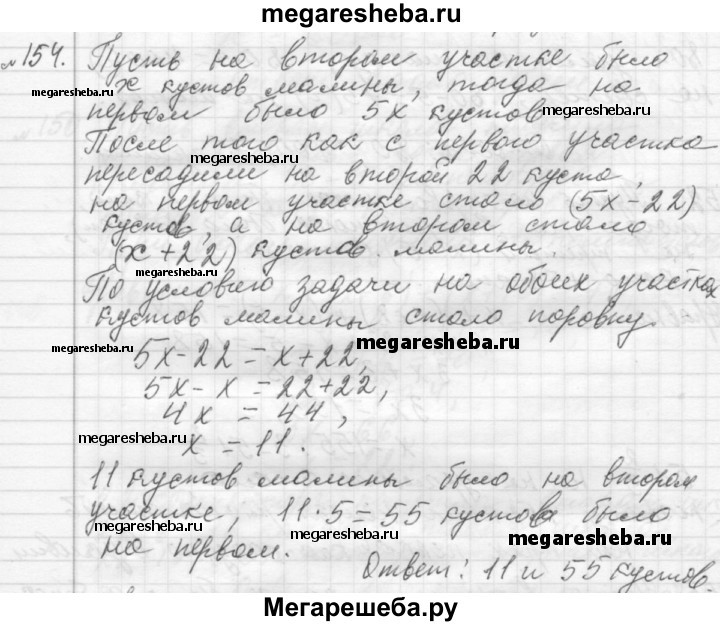 megaresheba.ru
№154. Пусть на втором участке было
x кустов малины, тогда на
megaresheba.ru
первом было 5x кустов
megaresheba.ru
После того как с первого участка
megaresheba.ru
пересадили на второй 22 куста,
на первом участке стало (5x-22)
кустов, а на втором стало
megaresheba.ru
(x+22) кустов малины.
megaresheba.ru
По условию задачи на обоих участках
кустов малины стало поровну.
megaresheba.ru
5x-22=x+22,
megaresheba.ru
5x-x=22+22,
4x = 44,
megaresheba.ru
x = 11.
11 кустов малины было на втором
участке, 11·5=55 кустов было
megaresheba.ru
megaresheba.ru
megaresheba.ru
на первом.
Ответ: 11 и 55 кустов.
Мегарешеба.ру